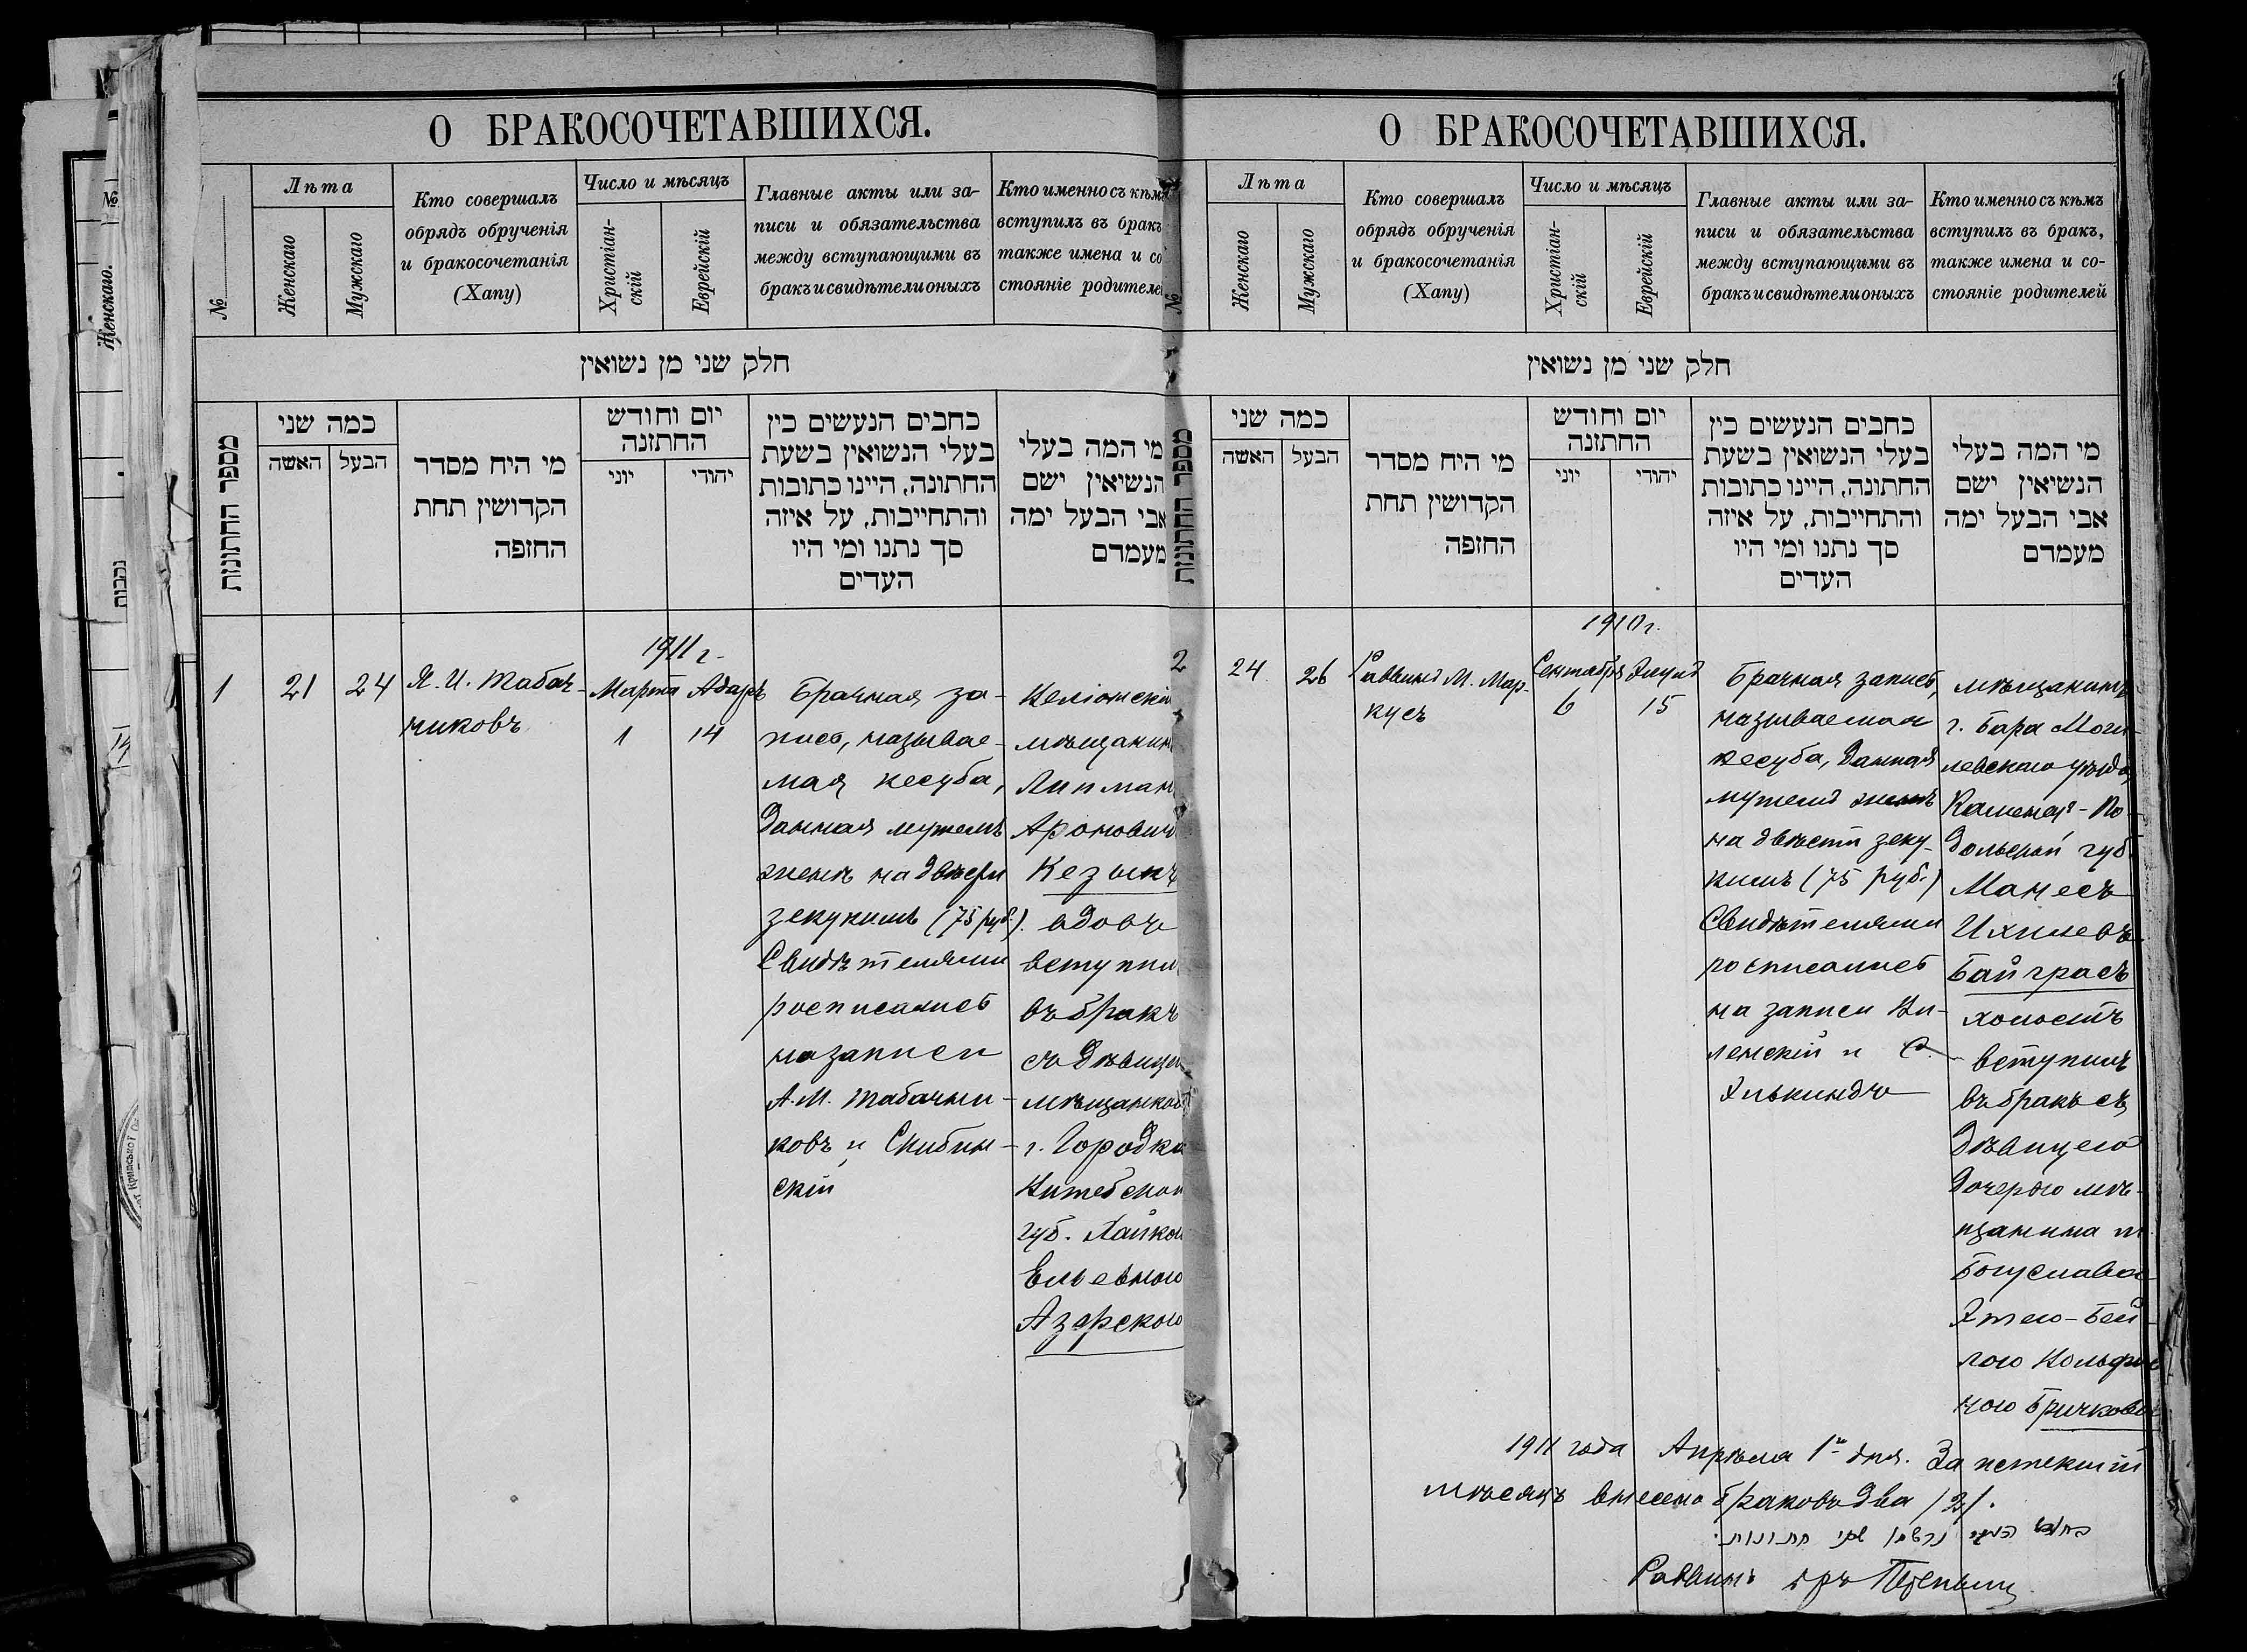 О БРАКОСОЧЕТАВШИХСЯ.
№
Лѣта
Женскаго
Мужскаго
Кто совершалъ
обрядъ обрученія
и бракосочетанія
(Хапу)
Число и мѣсяцъ
Христіан-
скій
Еврейскій
Главные акты или за-
писи и обязательства
между вступающими въ
бракъ и свидѣтели оныхъ
Кто именно съ кѣмъ
вступилъ въ бракъ
также имена и со
стояніе родителе
חלק שני מן נשואין
מספר החתונות
כמה שני
האשה
הבעל
מי היח מסדר
הקדושין תחת
החופה
יום וחודש
החתונה
יוני
יהודי
כתבים הנעשים כין
בעלי הנשואין בשעת
החתונה, היינו כתובות
והתחייבות, על איזה
סך נתנו ומי היו
העדים
מי המה בעלי
הנשיאין ישם
אבי הבעל ימה
מעמדם
1
21
24
Я. И. Табач-
никовъ
1911 г.
Марта
1
Адаръ
14
Брачная за-
пись, называе-
мая кесуба,
данная мужемъ
женѣ на двѣсти
зекукимъ (75 руб.).
Свидѣтелями
росписались
на записи
А. М. Табачни-
ковъ и Скибин-
скій
мѣщанин
Липман
Аронович
Кезынъ
вдовъ
вступил
въ бракъ
съ дѣвицею
мѣщанкою
г. Городка
Витебской
губ. Хайкою
Ельевною
Азарскою
О БРАКОСОЧЕТАВШИХСЯ.
№
Лѣта
Женскаго
Мужскаго
Кто совершалъ
обрядъ обрученія
и бракосочетанія
(Хапу)
Число и мѣсяцъ
Христіан-
скій
Еврейскій
Главные акты или за-
писи и обязательства
между вступающими въ
бракъ и свидѣтели оныхъ
Кто именно съ кѣмъ
вступилъ въ бракъ,
также имена и со-
стояніе родителей
חלק שני מן נשואין
מספר החתונות
כמה שני
האשה
הבעל
מי היח מסדר
הקדושין תחת
החופה
יום וחודש
החתונה
יוני
יהודי
כתבים הנעשים כין
בעלי הנשואין בשעת
החתונה, היינו כתובות
והתחייבות, על איזה
סך נתנו ומי היו
העדים
מי המה בעלי
הנשיאין ישם
אבי הבעל ימה
מעמדם
2
24
26
Раввинъ М. Мар-
кусъ
1910 г.
Сентября
6
Элулъ
15
Брачная запись,
называемая
кесуба, данная
мужемъ женѣ
на двѣсти зеку-
кимъ (75 руб.)
Свидѣтелями
росписались
на записи Ви-
ленскій и С.
Элькиндъ
мѣщанинъ
г. Бара Моги-
левскаго уѣзда
Каменец-По-
дольской губ.
Манесъ
Ихилевъ
Байграсъ
холостъ
вступилъ
въ бракъ съ
дѣвицею
дочерью мѣ-
щанина м.
Богуслава
Этею-Бей-
лою Вольфов
ною Бричковой
1911 года Апрѣля 1го дня. За истекшій
мѣсяцъ внесено браковъ два /2/.
שני חתונות.
Раввинъ